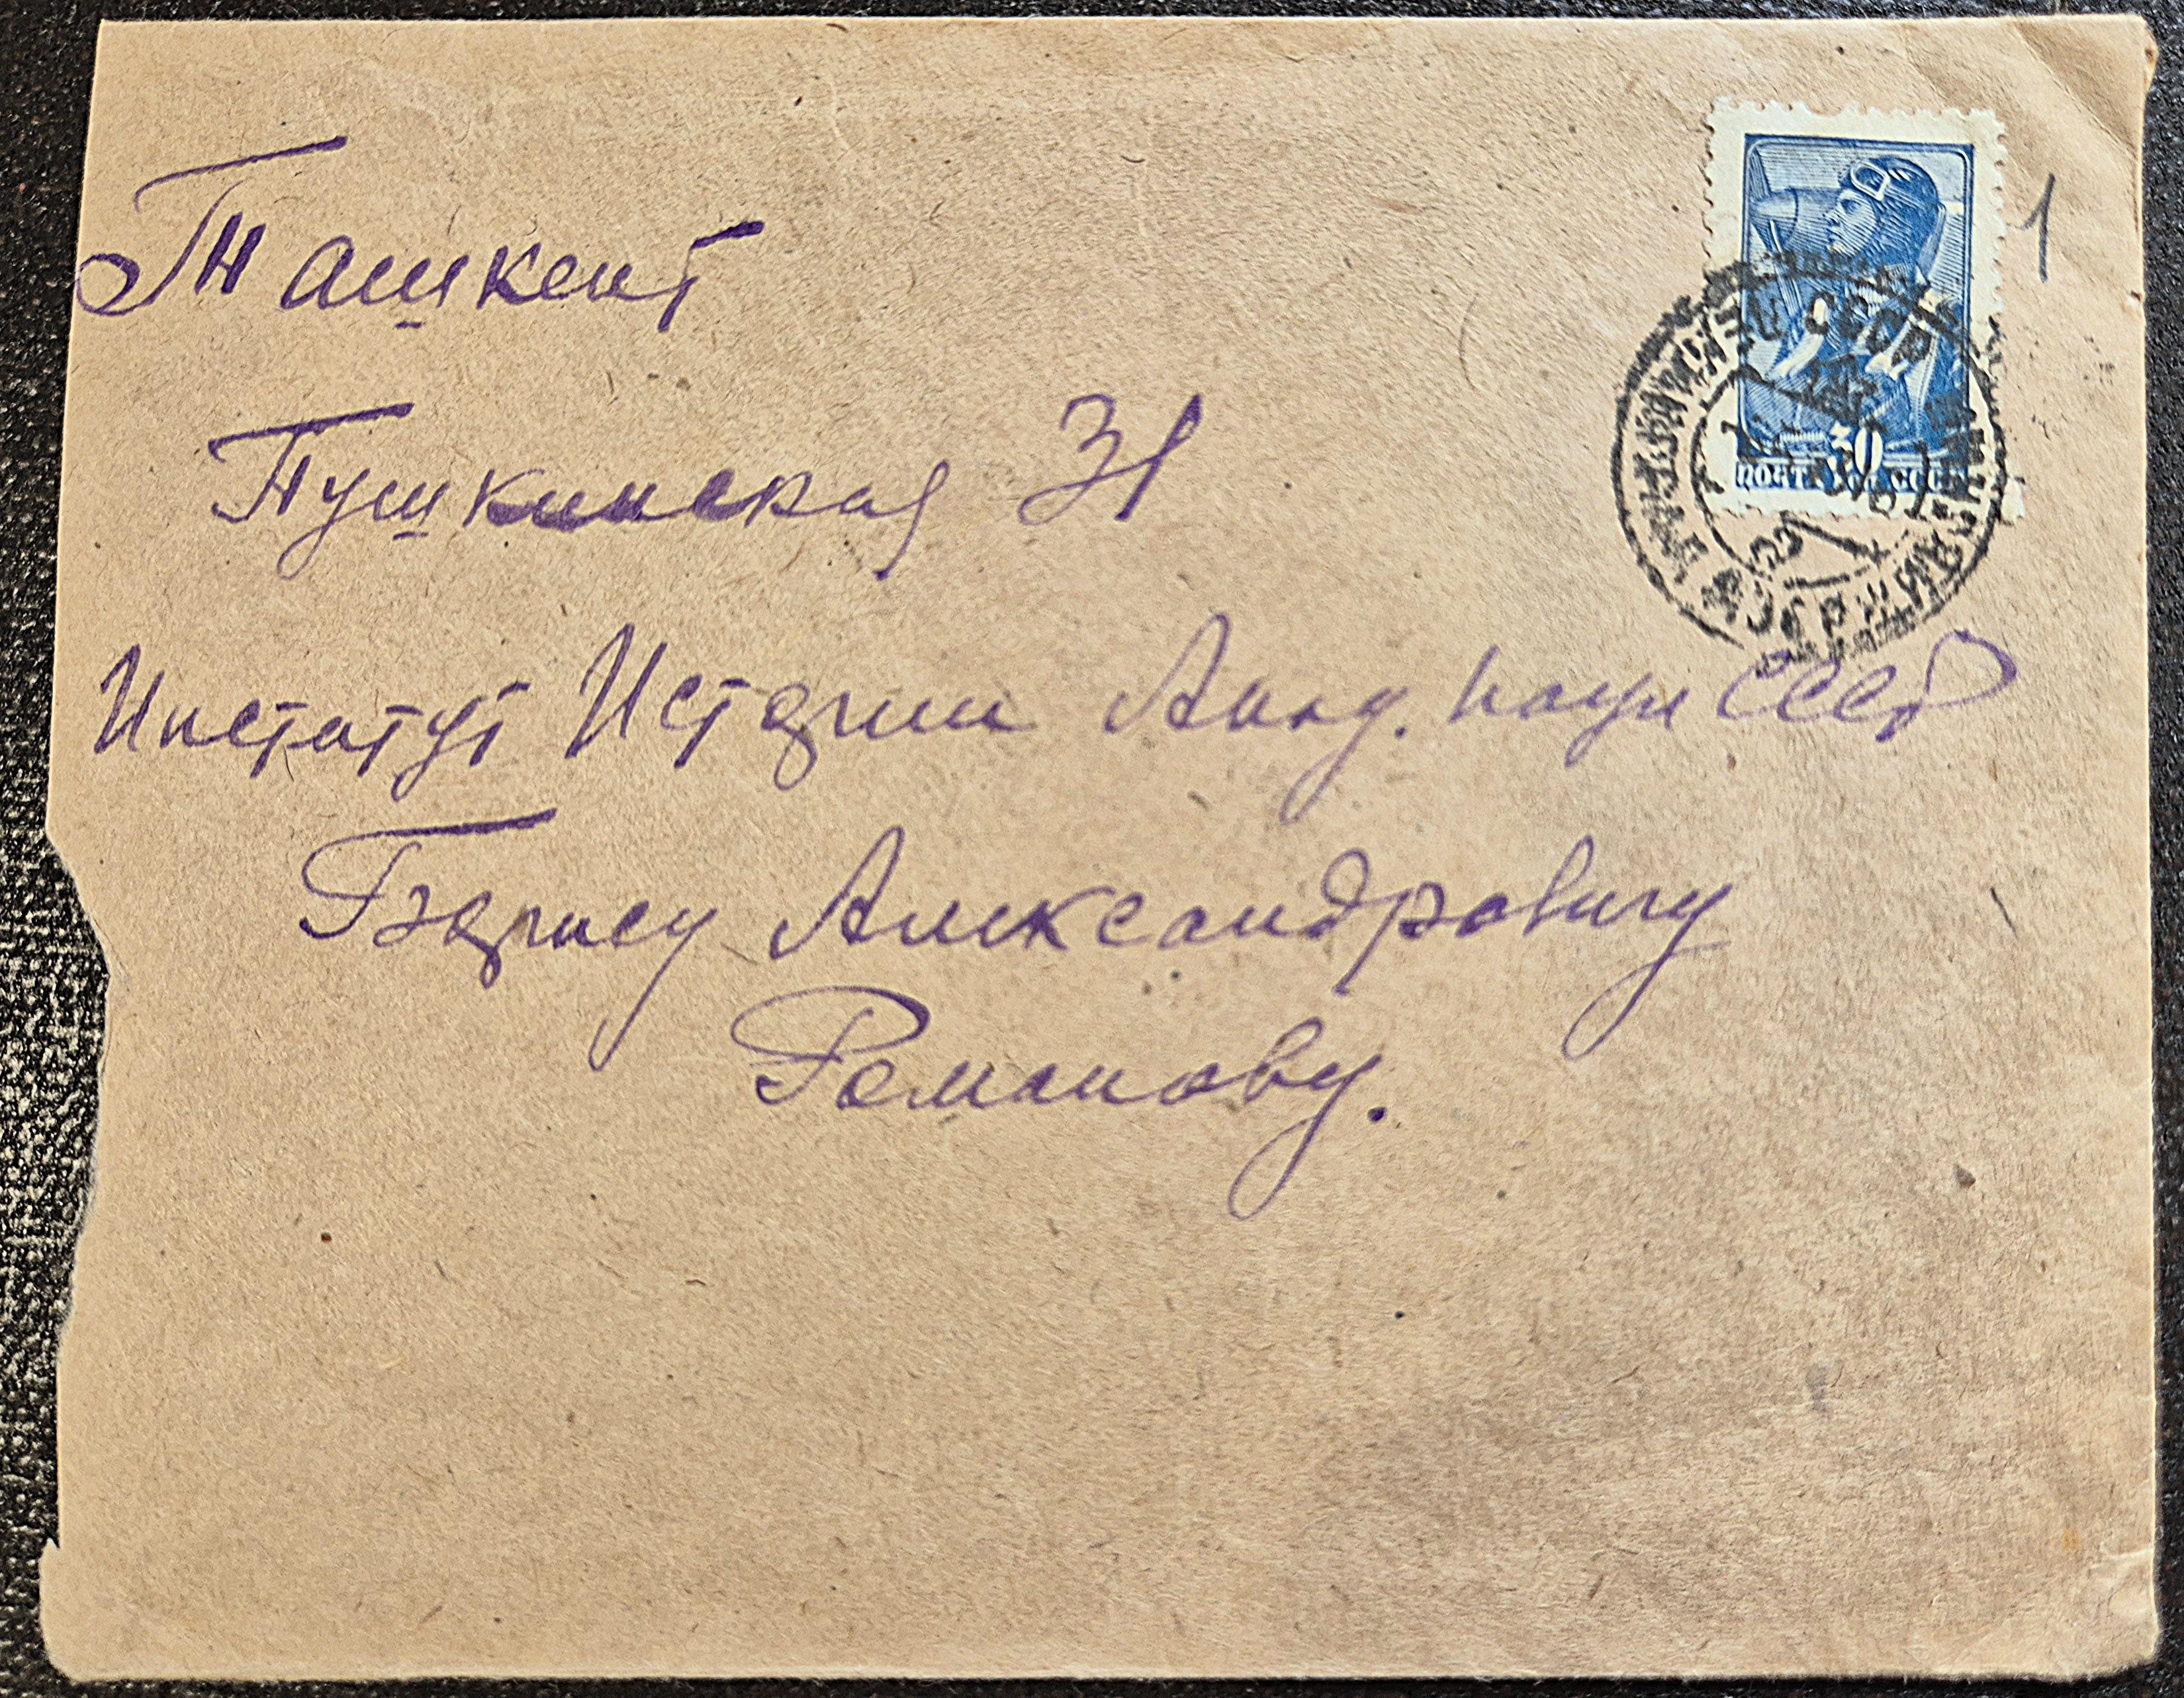 Ташкент
Пушкинская 31
Институт Истории Акад. наук СССР
Борису Александровичу
Романову.
1
30
ПОЧТА СССР